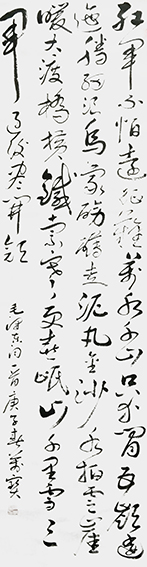 紅軍不怕遠征難萬水千山只等閒五嶺逶
迤騰細浪烏蒙磅礴走泥丸金沙水拍雲崖
暖大渡橋橫鐵索寒更喜岷山千里雪三
軍過後盡開顏
毛澤東 庚子春萬寶